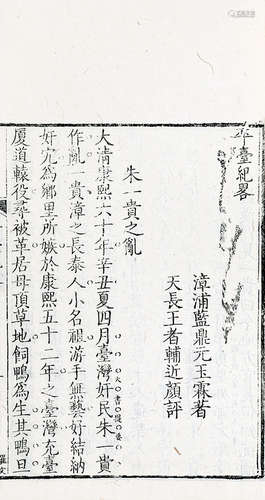 平臺紀畧
漳浦藍鼎元玉霖著
天長王者輔近顏評
朱一貴之亂
大清康熙六十年辛丑夏四月臺灣奸民朱一貴
大書提要
作亂一貴漳之長泰人小名祖游手無藝好結納
奸宄為鄉里所嫉於康熙五十二年之臺灣充臺
厦道轅役尋被革居母頂草地飼鴨為生其鴨旦